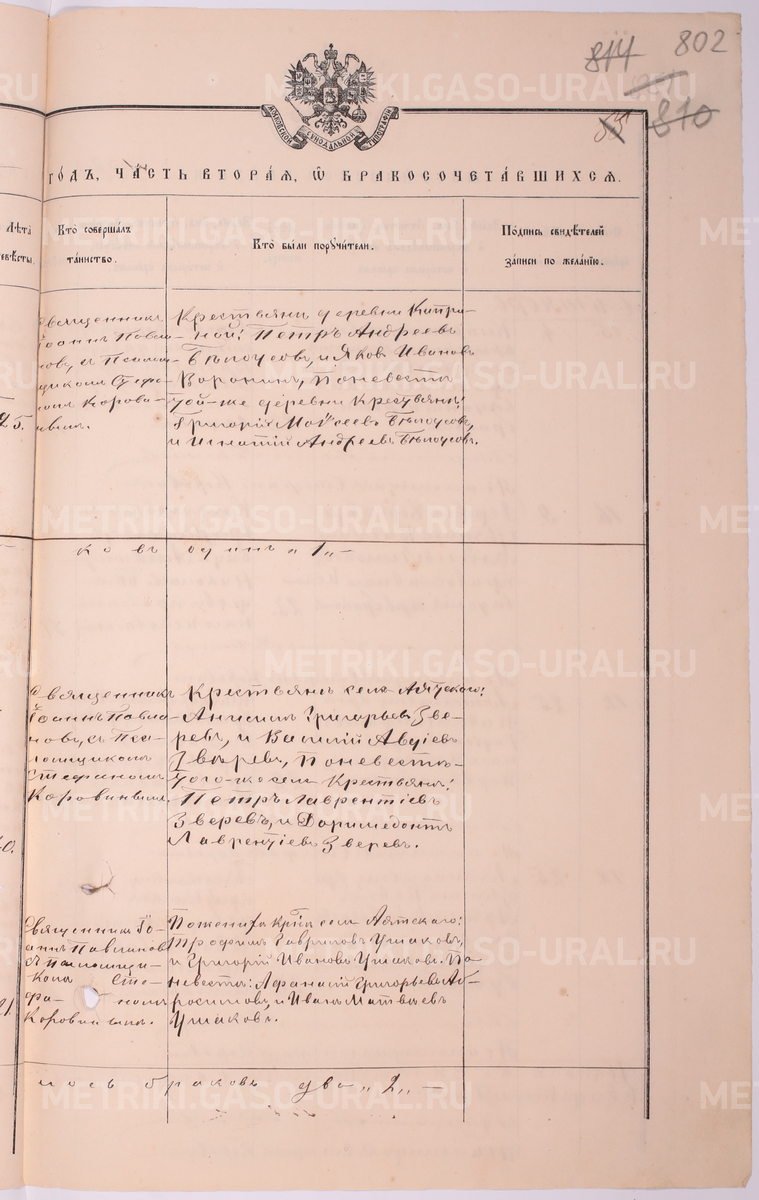 814 802
810
МОСКОВСКОЙ СѴНОДАЛЬНОЙ ТИПОГРАФІИ
ГОДЪ, ЧАСТЬ ВТОРАЯ, Ѿ БРАКОСОЧЕТАВШИХСЯ.
Лѣта
невѣсты.
Кто совершалъ
таинство.
Кто были поручители.
Подпись свидѣтелей
записи по желанію.
Священникъ
Іоаннъ Павли-
новъ, съ Псалом-
щикомъ Стефа-
номъ Корови-
нымъ.
25.
Крестьяни деревни Кипри-
ной: Петръ Андреевъ
Бѣлоусовъ, и Яковъ Ивановъ
Воронинъ, по невестѣ
той-же деревни Крестьяни:
Григорій Моѵсеевъ Бѣлоусовъ,
и Игнатій Андреевъ Бѣлоусовъ.
ковъ одинъ „1„ -
Священникъ
Іоаннъ Павли-
новъ, съ Пса-
ломщикомъ
Стефаномъ
Коровинымъ.
Крестьяни села Аятскаго:
Анисимъ Григорьевъ Зве-
ревъ, и Василій Авдіевъ
Звѣревъ, по невестѣ
того-же села Крестьяни:
Петръ Лаврентіевъ
Зверевъ, и Доримедонтъ
Лаврентіевъ Зверевъ.
Священникъ Іо-
аннъ Павлиновъ
съ псаломщи-
комъ Сте-
фаномъ
Коровинымъ.
21.
По женихѣ кр-не села Аятскаго:
Трофимъ Гавриловъ Ушаковъ,
и Григорій Ивановъ Ушаковъ. По
невестѣ: Афанасій Григорьевъ Аб-
росимовъ, и Иванъ Матвѣевъ
Ушаковъ.
лось браковъ два „2„ -
METRIKI.GASO-URAL.RU